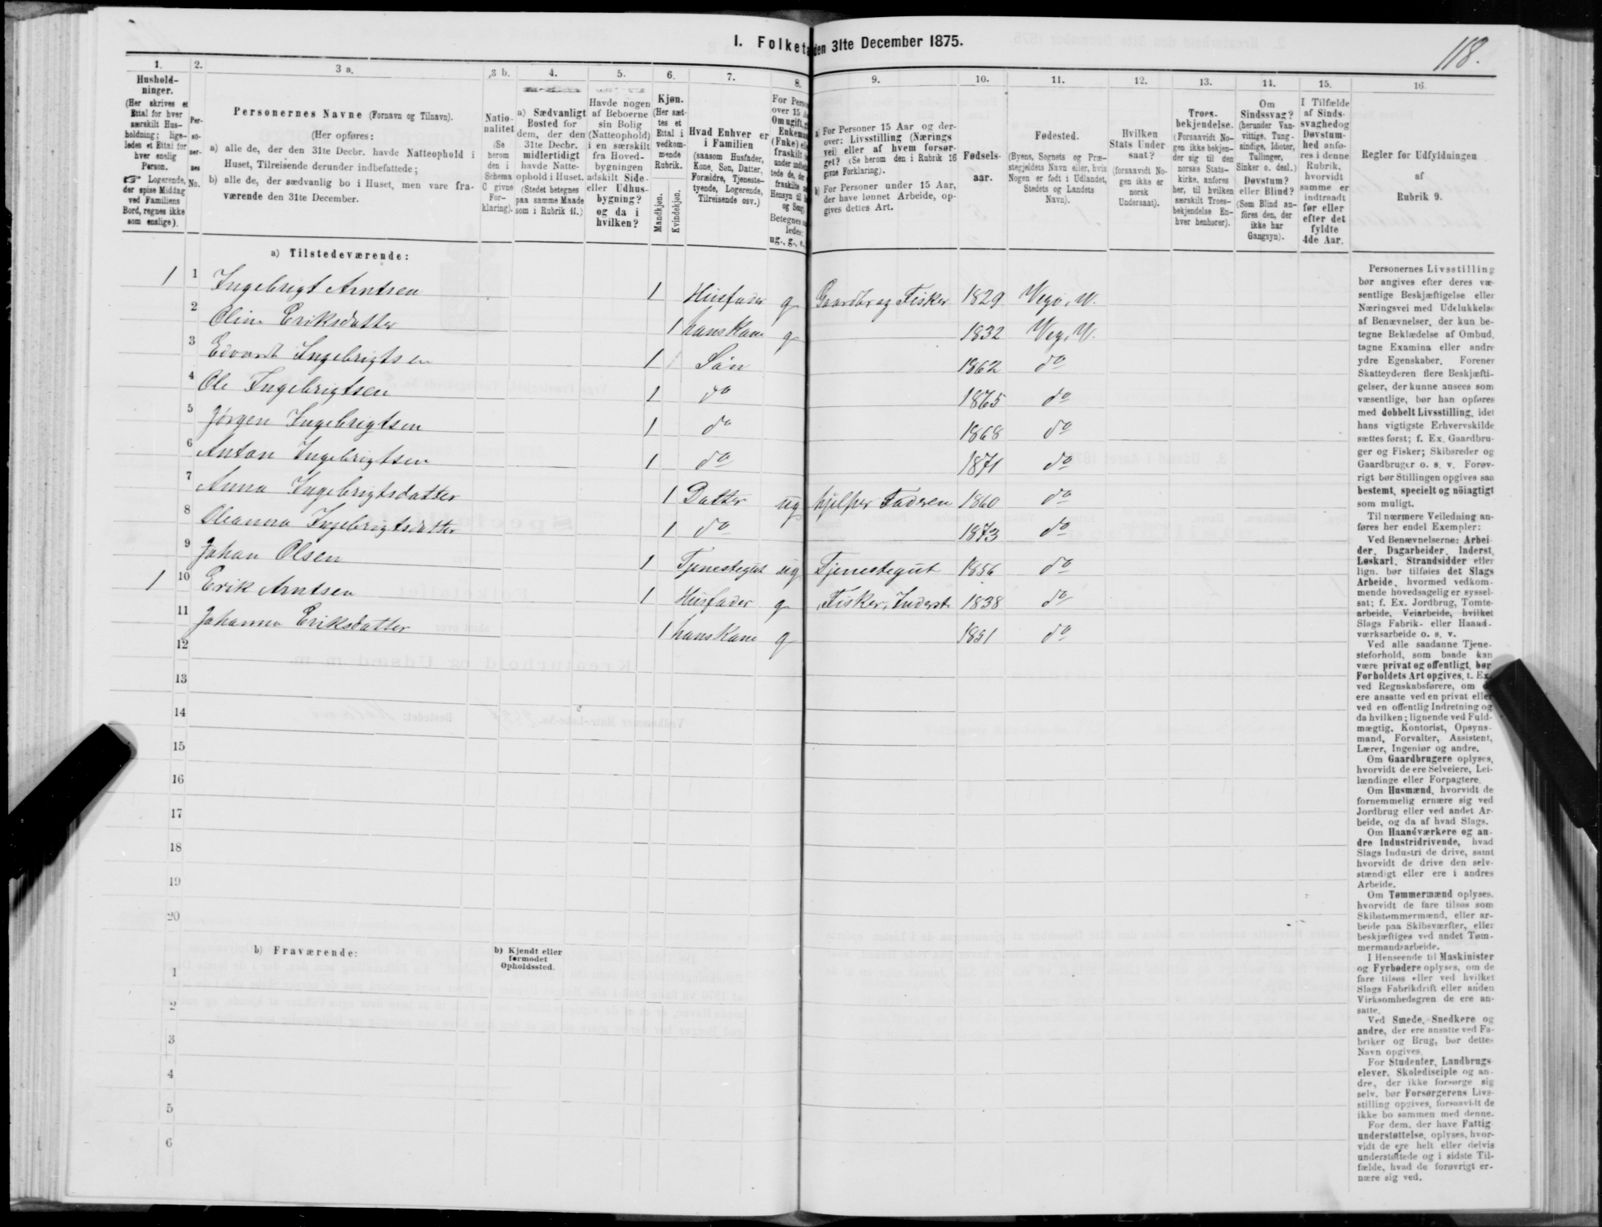 I. Folketal den 31te December 1875.
118.
1.
Hushold-
ninger.
(Her skrives et
Ettal for hver
særskilt Hus-
holdning; lige-
ledes et Ettal for
hver enslig
Person.
Logerende,
der spise Middag
ved Familiens
Bord, regnes ikke
som enslige).
2.
Per-
so-
ner-
nes
No.
3 a.
Personernes Navne (Fornavn og Tilnavn).
(Her opføres:
a) alle de, der den 31te Decbr. havde Natteophold i
Huset, Tilreisende derunder indbefattede;
b) alle de, der sædvanlig bo i Huset, men vare fra-
værende den 31te December.
3 b.
Natio-
nalitet
(Se
herom
den i
Schema
C givne
For-
klaring).
4.
a) Sædvanligt
Bosted for
dem, der den
31te Decbr.
midlertidigt
havde Natte-
ophold i Huset.
(Stedet betegnes
paa samme Maade
som i Rubrik 11.)
5.
Havde nogen
af Beboerne
sin Bolig
(Natteophold)
i en særskilt
fra Hoved-
bygningen
adskilt Side-
eller Udhus-
bygning?
og da i
hvilken?
6.
Kjøn.
(Her sæt-
tes et
Ettal i
vedkom-
mende
Rubrik.
Mandkjøn.
Kvindekjøn.
7.
Hvad Enhver er
i Familien
(saasom Husfader,
Kone, Søn, Datter,
Forældre, Tjeneste-
tyende, Logerende,
Tilreisende osv.)
8.
9.
a) For Personer 15 Aar og der-
over: Livsstilling (Nærings
vei) eller af hvem forsør-
get? (Se herom den i Rubrik 16
givne Forklaring).
b) For Personer under 15 Aar,
der have lønnet Arbeide, op-
gives dettes Art.
10.
Fødsels-
aar.
11.
Fødested.
(Byens, Sognets og Præ-
stegjeldets Navn eller, hvis
Nogen er født i Udlandet,
Stedets og Landets
Navn).
12.
Hvilken
Stats Under
saat?
(forsaavidt No-
gen ikke er
norsk
Undersaat).
13.
Troes-
bekjendelse.
(Forsaavidt No-
gen ikke bekjen-
der sig til den
norske Stats-
kirke, anføres
her, til hvilken
særskilt Troes-
bekjendelse En-
hver henhører).
14.
Om
Sindssvag?
(herunder Van-
vittige, Tung-
sindige, Idioter,
Tullinger,
Sinker o. desl.)
Døvstum?
eller Blind?
(Som Blind an-
føres den, der
ikke har
Gangsyn).
15.
I Tilfælde
af Sinds-
svaghed og
Døvstum-
hed anfø-
res i denne
Rubrik,
hvorvidt
samme er
indtraadt
før eller
efter det
fyldte
4de Aar.
16.
Regler for Udfyldningen
af
Rubrik 9.
a) Tilstedeværende:
1 1 Ingebrigt Arntsen 1 Husfader g Gaardbr og Fisker 1829 Vegø, V.
2 Oline Eriksdatter 1 hans Kone g 1832 Vegø V.
3 Edvardt Ingebrigtsen 1 Søn 1862 do
4 Ole Ingebrigtsen 1 do 1865 do
5 Jørgen Ingebrigtsen 1 do 1868 do
6 Anton Ingebrigtsen 1 do 1871 do
7 Anna Ingebrigtsdatter 1 Datter ug hjelper Faderen 1860 do
8 Oleanna Ingebrigtsdatter 1 do 1873 do
9 Johan Olsen 1 Tjenestegut ug Tjenestegut 1856 do
1 10 Erik Arntsen 1 Husfader g Fisker, Inderst 1838 do
11 Johanna Eriksdatter 1 hans Kone g 1851 do
12
13
14
15
16
17
18
19
20
b) Fraværende:
b) Kjendt eller
formodet
Opholdssted.
1
2
3
4
5
6
Personernes Livsstilling
bør angives efter deres væ-
sentlige Beskjæftigelse eller
Næringsvei med Udelukkelse
af Benævnelser, der kun be-
tegne Beklædelse af Ombud,
tagne Examina eller andre
ydre Egenskaber. Forener
Skatteyderen flere Beskjæfti-
gelser, der kunne ansees som
væsentlige, bør han opføres
med dobbelt Livsstilling, idet
hans vigtigste Erhvervskilde
sættes først; f. Ex. Gaardbru-
ger og Fisker; Skibsreder og
Gaardbruger o. s. v. Forøv-
rigt bør Stillingen opgives saa
bestemt, specielt og nøiagtigt
som muligt.
Til nærmere Veiledning an-
føres her endel Exempler:
Ved Benævnelserne: Arbei-
der, Dagarbeider, Inderst,
Løskarl, Strandsidder eller
lign. bør tilføies det Slags
Arbeide, hvormed vedkom-
mende hovedsagelig er syssel-
sat; f. Ex. Jordbrug, Tomte-
arbeide, Veiarbeide, hvilket
Slags Fabrik- eller Haand-
værksarbeide o. s. v.
Ved alle saadanne Tjene-
steforhold, som baade kan
være privat og offentligt, bør
Forholdets Art opgives, t. Ex.
ved Regnskabsførere, om de
ere ansatte ved en privat eller
ved en offentlig Indretning og
da hvilken; lignende ved Fuld-
mægtig, Kontorist, Opsyns-
mand, Forvalter, Assistent,
Lærer, Ingeniør og andre.
Om Gaardbrugere oplyses,
hvorvidt de ere Selveiere, Lei-
lændinge eller Forpagtere.
Om Husmænd, hvorvidt de
fornemmelig ernære sig ved
Jordbrug eller ved andet Ar-
beide, og da af hvad Slags.
Om Haandværkere og an-
dre Industridrivende, hvad
Slags Industri de drive, samt
hvorvidt de drive den selv-
stændigt eller ere i andres
Arbeide.
Om Tømmermænd oplyses,
hvorvidt de fare tilsøs som
Skibstømmermænd, eller ar-
beide paa Skibsværfter, eller
beskjæftiges ved andet Tøm-
mermandsarbeide.
I Henseende til Maskinister
og Fyrbødere oplyses, om de
fare tilsøs eller ved hvilket
Slags Fabrikdrift eller anden
Virksomhedsgren de ere an-
satte.
Ved Smede, Snedkere og
andre, der ere ansatte ved Fa-
briker og Brug, bør dettes
Navn opgives.
For Studenter, Landbrugs-
elever, Skoledisciple og an-
dre, der ikke forsørge sig
selv, bør Forsørgerens Livs-
stilling opgives, forsaavidt de
ikke bo sammen med denne.
For dem, der have Fattig-
understøttelse, oplyses, hvor-
vidt de ere helt eller delvis
understøttede og i sidste Til-
fælde, hvad de forøvrigt er-
nære sig ved.